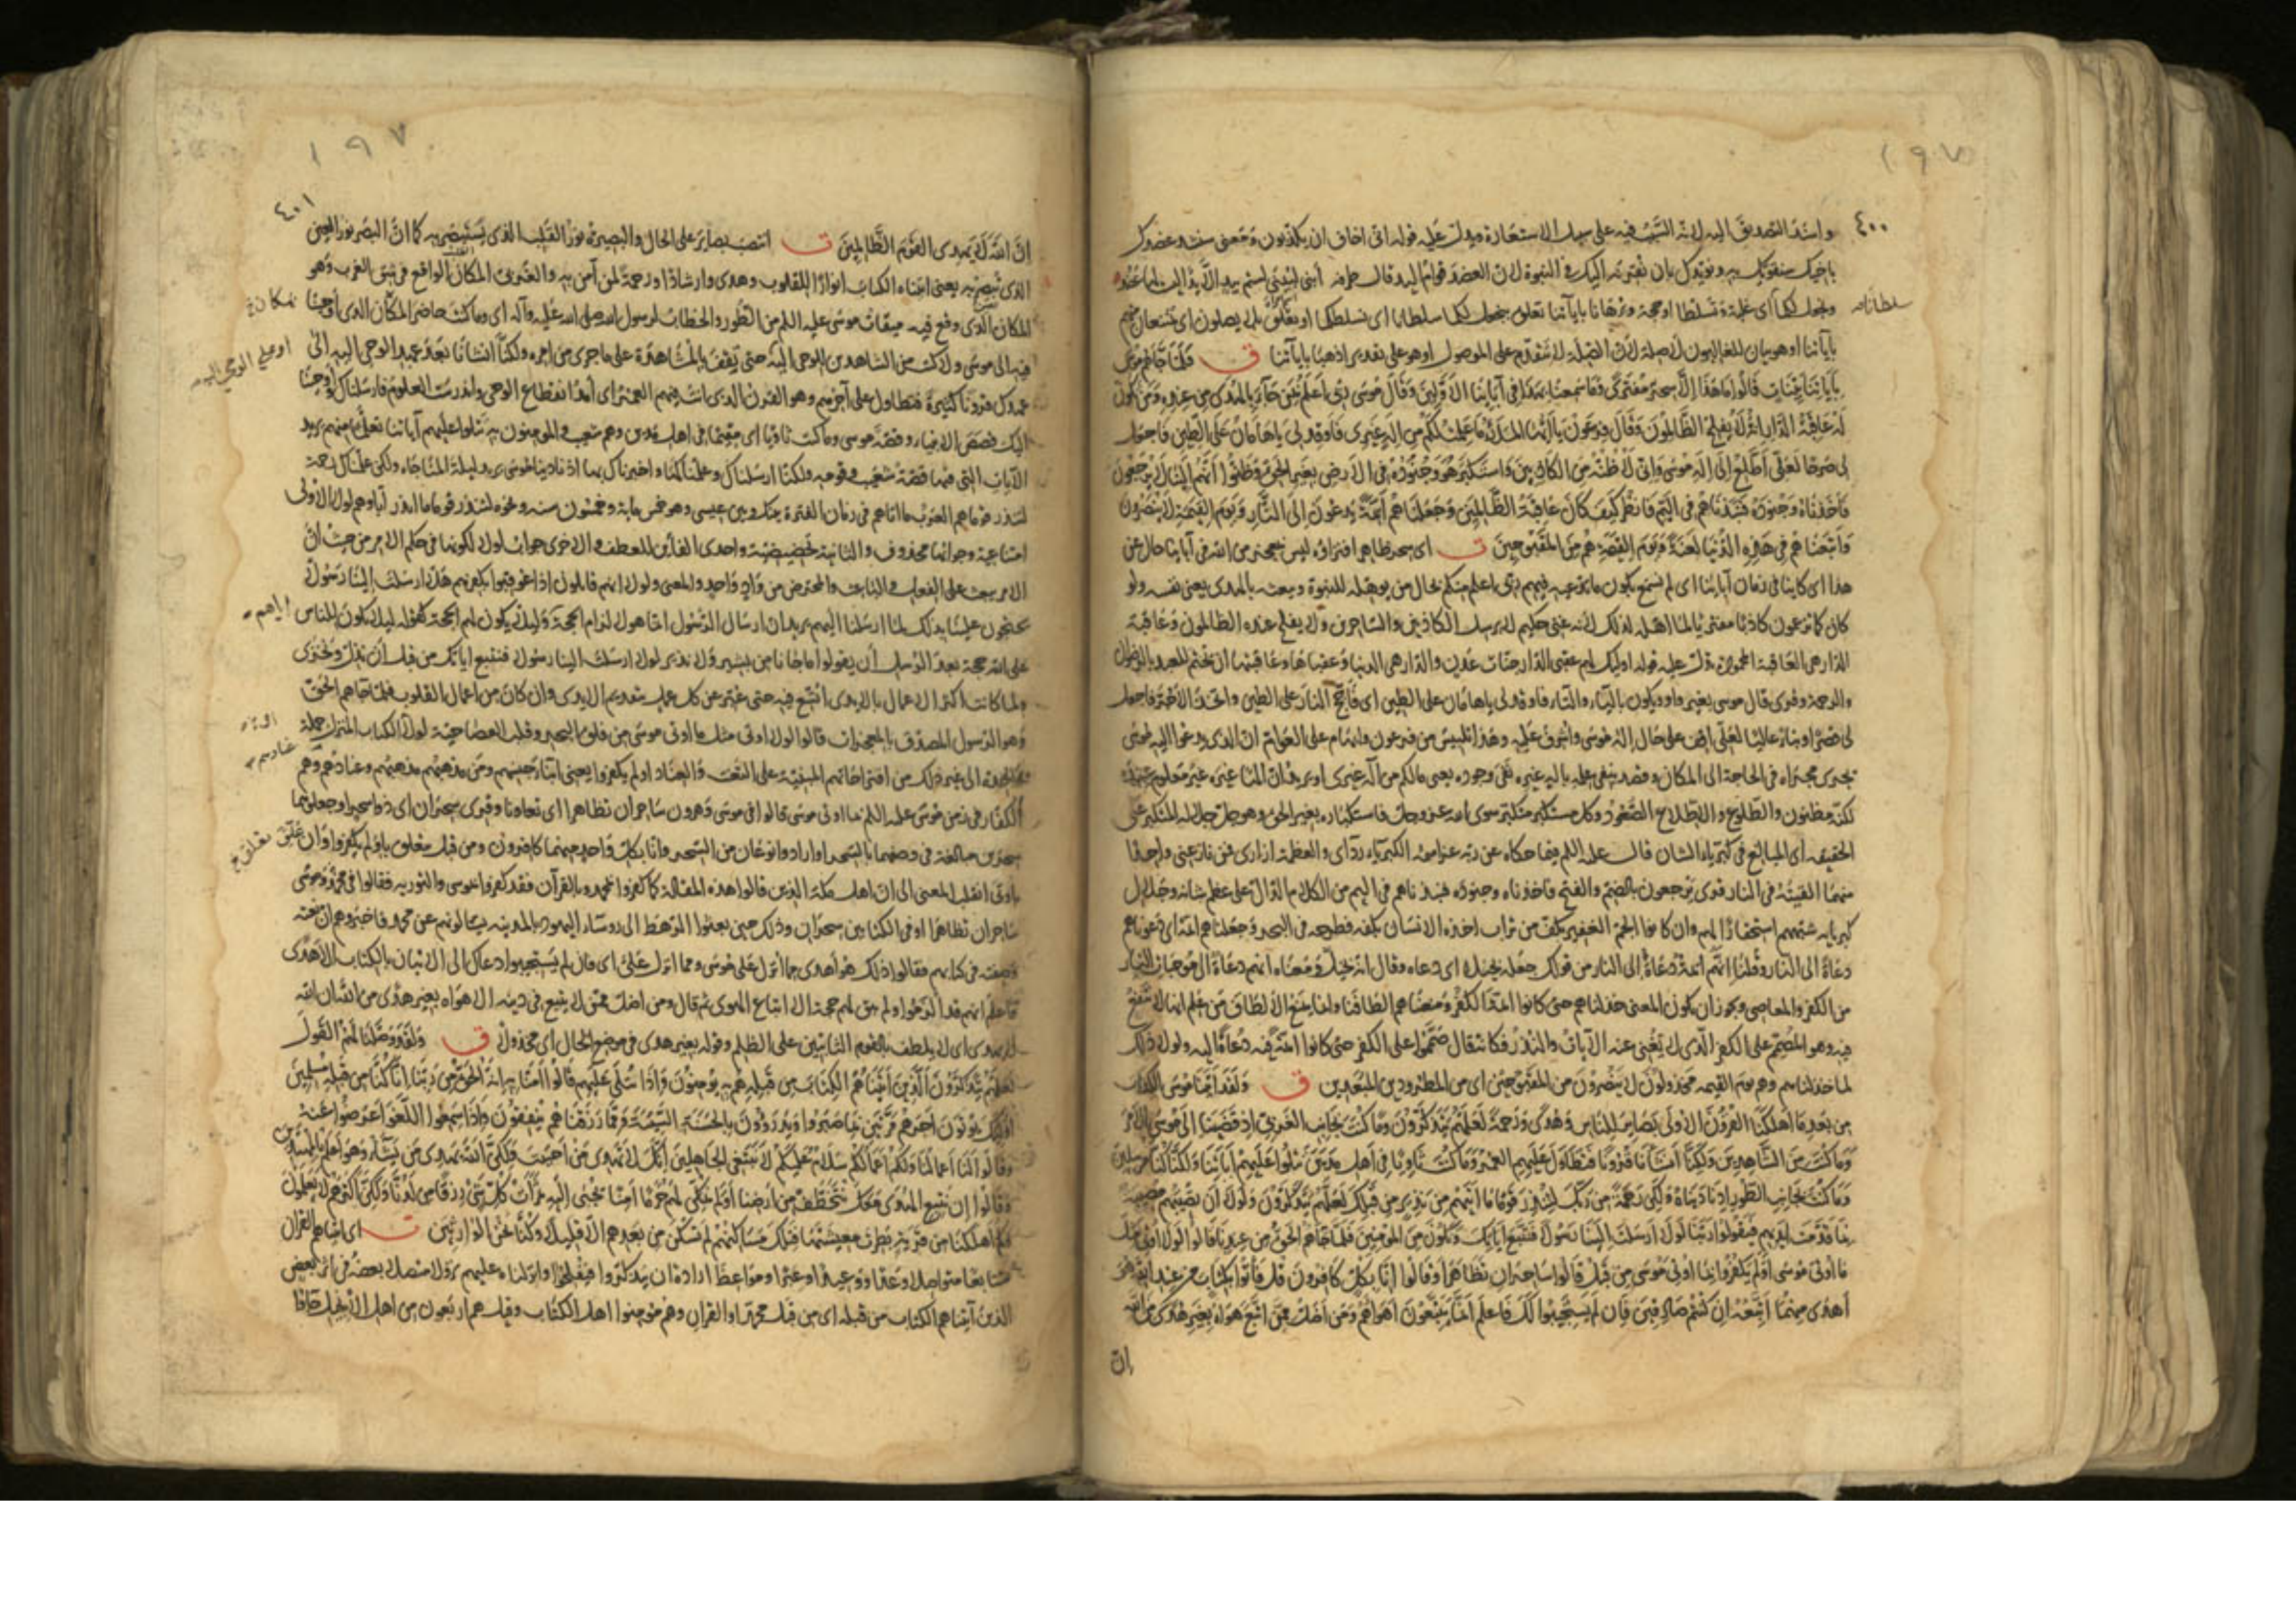 ١٩٧
٤٠٠
واسند التصديق اليه لانه السبب فيه على سبيل الاستعارة ويدل عليه قوله انى اخاف ان يكذبون ومعنى سنشد عضدك
باخيك سنقويك به ونؤيدك بان نقرنه اليك فى النبوة لان العضد قوام اليد
سلطانا
ونجعل لكما اى غلبة وتسلطا او حجة وبرهانا بآياتنا تعلق بنجعل لكما سلطانا اى نسلطكما او بلا يصلون اى تمتنعان منهم
بآياتنا او هو بيان للغالبون لا صلة لان الصلة لا تتقدم على الموصول او هو على تقدير اذهبا بآياتنا ق فلما جاءهم موسى
بآياتنا بينات قالوا ما هذا الا سحر مفترى وما سمعنا بهذا فى آبائنا الاولين وقال موسى ربى اعلم بمن جاء بالهدى من عنده ومن تكون
له عاقبة الدار انه لا يفلح الظالمون وقال فرعون يا ايها الملأ ما علمت لكم من اله غيرى فاوقد لى يا هامان على الطين فاجعل
لى صرحا لعلى اطلع الى اله موسى وانى لاظنه من الكاذبين واستكبر هو وجنوده فى الارض بغير الحق وظنوا انهم الينا لا يرجعون
فاخذناه وجنوده فنبذناهم فى اليم فانظر كيف كان عاقبة الظالمين وجعلناهم ائمة يدعون الى النار ويوم القيمة لا ينصرون
واتبعناهم فى هذه الدنيا لعنة ويوم القيمة هم من المقبوحين ت اى سحر ظاهر افتراؤه ليس بمعجز من الله فى آبائنا حال عن
هذا اى كاينا فى زمان آبائنا اى لم نسمع بكون ما يدعيه فيهم ربى اعلم منكم بحال من يؤهله للنبوة وبعثه بالهدى يعنى نفسه ولو
كان كما تزعمون كاذبا مفتريا لما اهله لذلك لانه غنى حكيم لا يرسل الكاذبين والساحرين ولا يفلح عنده الظالمون وعاقبة
الدار هى العاقبة المحمودة يدل عليه قوله اوليك لهم عقبى الدار جنات عدن والدار هى الدنيا وعقباها وعاقبتها ان يختم للعبد بالرضوان
والرحمة وقرى قال موسى بغير واو ويكون بالياء والتاء فاوقد لى يا هامان على الطين اى فاجج النار على الطين واتخذ الآجر فاجعل
لى قصرا وبناء عاليا لعلى اقف على حال اله موسى واشرف عليه وهذا تلبيس من فرعون وايهام على العوام ان الذى يدعو اليه موسى
يجرى مجراه فى الحاجة الى المكان وقصد بنفى علمه باله غيره نفى وجوده يعنى مالكم من اله غيرى او يريد ان الها غيره غير معلوم عنده
لكنه مظنون والطلوع والاطلاع الصعود وكل مستكبر متكبر سوى الله عز وجل فاستكباره بغير الحق وهو جل جلاله المتكبر على
الحقيقة اى المبالغ فى كبرياء الشان قال عليه السلم فيما حكاه عن ربه عز اسمه الكبرياء ردآى والعظمة ازارى فمن نازعنى واحدا
منهما القيته فى النار قرى يرجعون بالضم والفتح فاخذناه وجنوده فنبذناهم فى اليم من الكلام الدال على عظم شانه وجلال
كبريايه شبههم استحقارا لهم وان كانوا الجم الغفير بكف من تراب اخذه الانسان بكفه فطرحه فى البحر وجعلناهم ائمة اى دعوناهم
دعاة الى النار وقلنا انهم ائمة دعاة الى النار من قولك جعله بخيلا اى دعاه وقال انه بخيل ومعناه انهم دعاة الى موجبات النار
من الكفر والمعاصى ويجوز ان يكون المعنى خذلناهم حتى كانوا ائمة الكفر ومعنى منعناهم الطافنا وانما يمنع الالطاف من علم انها لا تنفع
فيه وهو المصمم على الكفر الذى لا تغنى عنه الآيات والنذر فكانه قال صمموا على الكفر حتى كانوا ائمة فيه دعاة اليه ولولا ذلك
لما خذلناهم وهم يوم القيمة مخذولون لا ينصرون من المقبوحين اى من المطرودين المبعدين ق ولقد آتينا موسى الكتاب
من بعد ما اهلكنا القرون الاولى بصاير للناس وهدى ورحمة لعلهم يتذكرون وما كنت بجانب الغربى اذ قضينا الى موسى الامر
وما كنت من الشاهدين ولكنا انشأنا قرونا فتطاول عليهم العمر وما كنت ثاويا فى اهل مدين تتلوا عليهم آياتنا ولكنا كنا مرسلين
وما كنت بجانب الطور اذ نادينا ولكن رحمة من ربك لتنذر قوما ما آتيهم من نذير من قبلك لعلهم يتذكرون ولولا ان تصيبهم مصيبة
بما قدمت ايديهم فيقولوا ربنا لولا ارسلت الينا رسولا فنتبع آياتك ونكون من المؤمنين فلما جاءهم الحق من عندنا قالوا لولا اوتى مثل
ما اوتى موسى اولم يكفروا بما اوتى موسى من قبل قالوا ساحران تظاهرا وقالوا انا بكل كافرون قل فأتوا بكتاب من عند الله هو
اهدى منهما اتبعه ان كنتم صادقين فان لم يستجيبوا لك فاعلم انما يتبعون اهواءهم ومن اضل ممن اتبع هواه بغير هدى من الله
ان
١٩٧
٤٠١
ان الله لا يهدى القوم الظالمين ت انتصب بصاير على الحال والبصيرة نور القلب الذى يستبصر به كما ان البصر نور العين
الذى تبصر به يعنى آتيناه الكتاب انوارا للقلوب وهدى وارشادا ورحمة لمن آمن به والغربى المكان الواقع فى شق الغرب وهو
المكان الذى وقع فيه ميقات موسى عليه السلم من الطور والخطاب لرسول الله صلى الله عليه وآله اى وما كنت حاضر المكان الذى اوحينا
فيه الى موسى ولا كنت من الشاهدين للوحى اليه حتى تقف بالمشاهدة على ما جرى من امره ولكنا انشانا بعد عهد الوحى اليه الى
او على الوحى اليه
عهدك قرونا كثيرة فتطاول على آخرهم وهو القرن الذى انت فيهم العمر اى امد انقطاع الوحى واندرست العلوم فارسلناك واوحينا
اليك قصص الانبياء وقصة موسى وما كنت ثاويا اى مقيما فى اهل مدين وهم شعيب والمؤمنون به تتلوا عليهم آياتنا تعلما منهم يريد
الآيات التى فيها قصة شعيب وقومه ولكنا ارسلناك وعلمناكها واخبرناك بها اذ نادينا موسى يريد ليلة المناجاة ولكن علمناك رحمة
لتنذر قوما هم العرب ما اتاهم فى زمان الفترة بينك وبين عيسى وهو خمس مائة وخمسون سنة ونحوه لتنذر قوما ما انذر آباؤهم لولا الاولى
امتناعية وجوابها محذوف والثانية تحضيضية واحدى الفائين للعطف والاخرى جواب لولا لكونها فى حكم الامر من حيث ان
الامر بعث على الفعل والباعث والمحرض من واد واحد والمعنى ولولا انهم قايلون اذا عوقبوا بكفرهم هلا ارسلت الينا رسولا
محتجون علينا بذلك لما ارسلنا اليهم يريد ان ارسال الرسول انما هو لالزام الحجة ولئلا يكون لهم الحجة كقوله لئلا يكون للناس
على الله حجة بعد الرسل ان يقولوا ما جانا من بشير ولا نذير لولا ارسلت الينا رسولا فنتبع اياتك من قبل ان نذل ونخزى
ولما كانت اكثر الاعمال بالايدى اتسع فيه حتى عبر عن كل عمل بتقديم الايدى وان كان من اعمال القلوب فلما جاءهم الحق
وهو الرسول المصدق بالمعجزات قالوا لولا اوتى مثل ما اوتى موسى من فلق البحر وقلب العصا حية لولا الكتاب المنزل جملة
الى غير ذلك من اقتراحاتهم المبنية على التعنت والعناد اولم يكفروا يعنى ابناء جنسهم ومن مذهبهم مذهبهم وعنادهم وهم
الكفار فى زمن موسى عليه السلم بما اوتى موسى قالوا فى موسى وهرون ساحران تظاهرا اى تعاونا وقرى سحران اى ذوا سحر او جعلوهما
سحرين مبالغة فى وصفهما بالسحر او ارادوا نوعان من السحر وانا بكل واحد منهما كافرون ومن قبل متعلق باولم يكفروا وان علق
باوتى انقلب المعنى الى ان اهل مكة الذين قالوا هذه المقالة كما كفروا بمحمد وبالقرآن فقد كفروا بموسى والتورية فقالوا فى محمد وموسى
ساحران تظاهرا او فى الكتابين سحران وذلك حين بعثوا الرهط الى رؤساء اليهود بالمدينة يسألونهم عن محمد فاخبروهم ان نعته
وصفته فى كتابهم فقالوا ذلك هو اهدى مما انزل على موسى ومما انزل على اى فان لم يستجيبوا دعاك الى الاتيان بالكتاب الاهدى
فاعلم انهم قد الزموا ولم يبق لهم حجة الا اتباع الهوى ثم قال ومن اضل ممن لا يتبع فى دينه الا هواه بغير هدى من الله ان الله
لا يهدى اى لا يلطف بالقوم الثابتين على الظلم وقوله بغير هدى فى موضع الحال اى مخذولا ق ولقد وصلنا لهم القول
لعلهم يتذكرون الذين آتيناهم الكتاب من قبله هم به يؤمنون واذا تتلى عليهم قالوا آمنا به انه الحق من ربنا انا كنا من قبله مسلمين
اوليك يؤتون اجرهم مرتين بما صبروا ويدرؤون بالحسنة السيئة ومما رزقناهم ينفقون واذا سمعوا اللغو اعرضوا عنه
وقالوا لنا اعمالنا ولكم اعمالكم سلام عليكم لا نبتغى الجاهلين انك لا تهدى من احببت ولكن الله يهدى من يشاء وهو اعلم بالمهتدين
وقالوا ان نتبع الهدى معك نتخطف من ارضنا اولم نمكن لهم حرما آمنا يجبى اليه ثمرات كل شئ رزقا من لدنا ولكن اكثرهم لا يعلمون
وكم اهلكنا من قرية بطرت معيشتها فتلك مساكنهم لم تسكن من بعدهم الا قليلا وكنا نحن الوارثين ت اى اتاهم القرآن
متتابعا متواصلا وعدا ووعيدا وعبرا ومواعظ ارادة ان يتذكروا فيفلحوا او انزلناه عليهم نزولا متصلا بعضه فى اثر بعض
الذين آتيناهم الكتاب من قبله اى من قبل محمد او القرآن وهم مؤمنوا اهل الكتاب وقيل هم اربعون من اهل الانجيل جاؤا